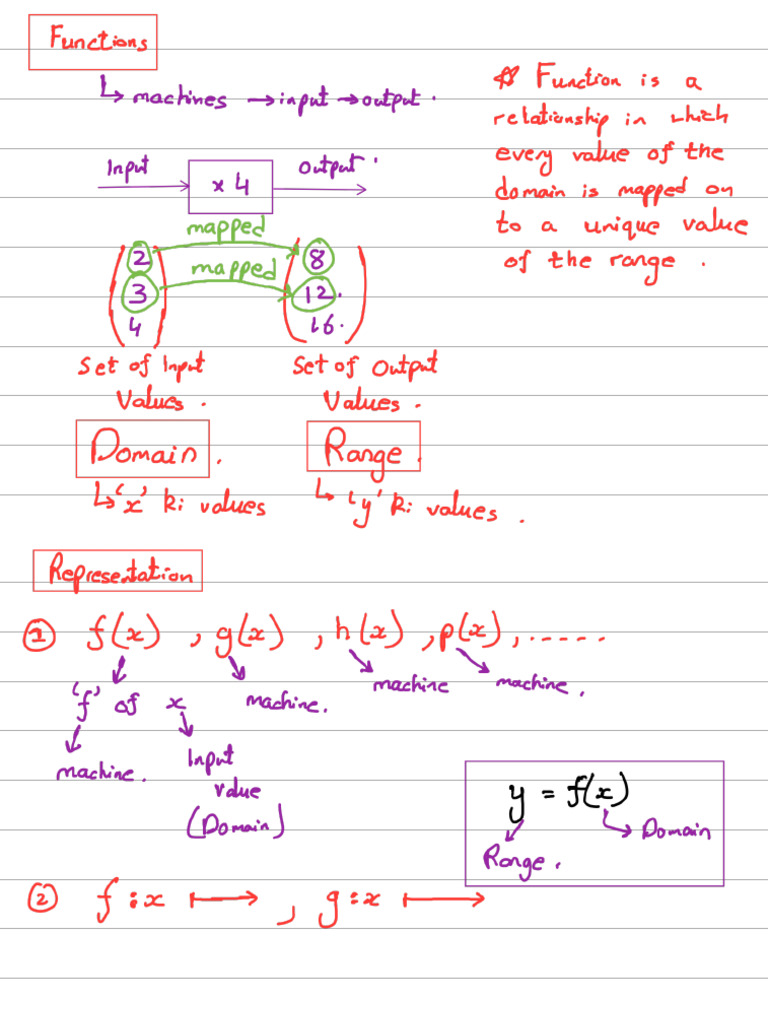 Functions
↳ machines → input → output .
☆ Function is a
relationship in which
every value of the
domain is mapped on
to a unique value
of the range .
Input
× 4
Output .
mapped
mapped
2
3
4
8
12 .
16 .
Set of Input
Values .
Set of Output
Values .
Domain .
Range .
↳ 'x' ki values
↳ 'y' ki values .
Representation
① f(x) , g(x) , h(x) , p(x) , .....
'f' of x
machine .
machine
machine .
machine .
Input
value
(Domain)
y = f(x)
Domain
Range .
② f : x ⟼ , g : x ⟼